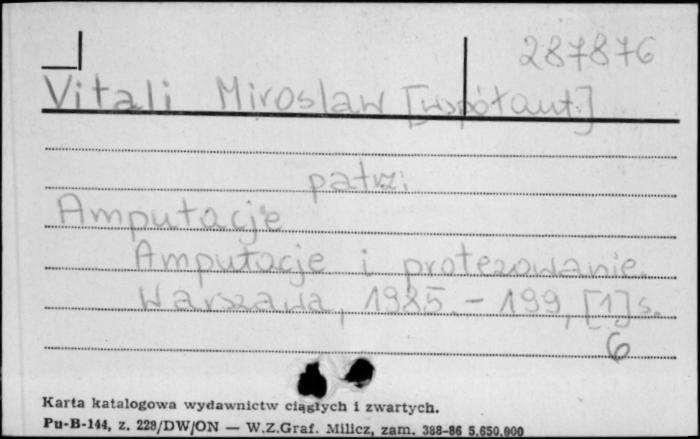 287876
Vitali Miroslaw [współaut.]
patrz:
Amputacje
Amputacje i protezowanie.
Warszawa, 1985. - 199, [1] s.
6
Karta katalogowa wydawnictw ciągłych i zwartych.
Pu-B-144, z. 228/DW/ON — W.Z.Graf. Milicz, zam. 388-86 5.650.000